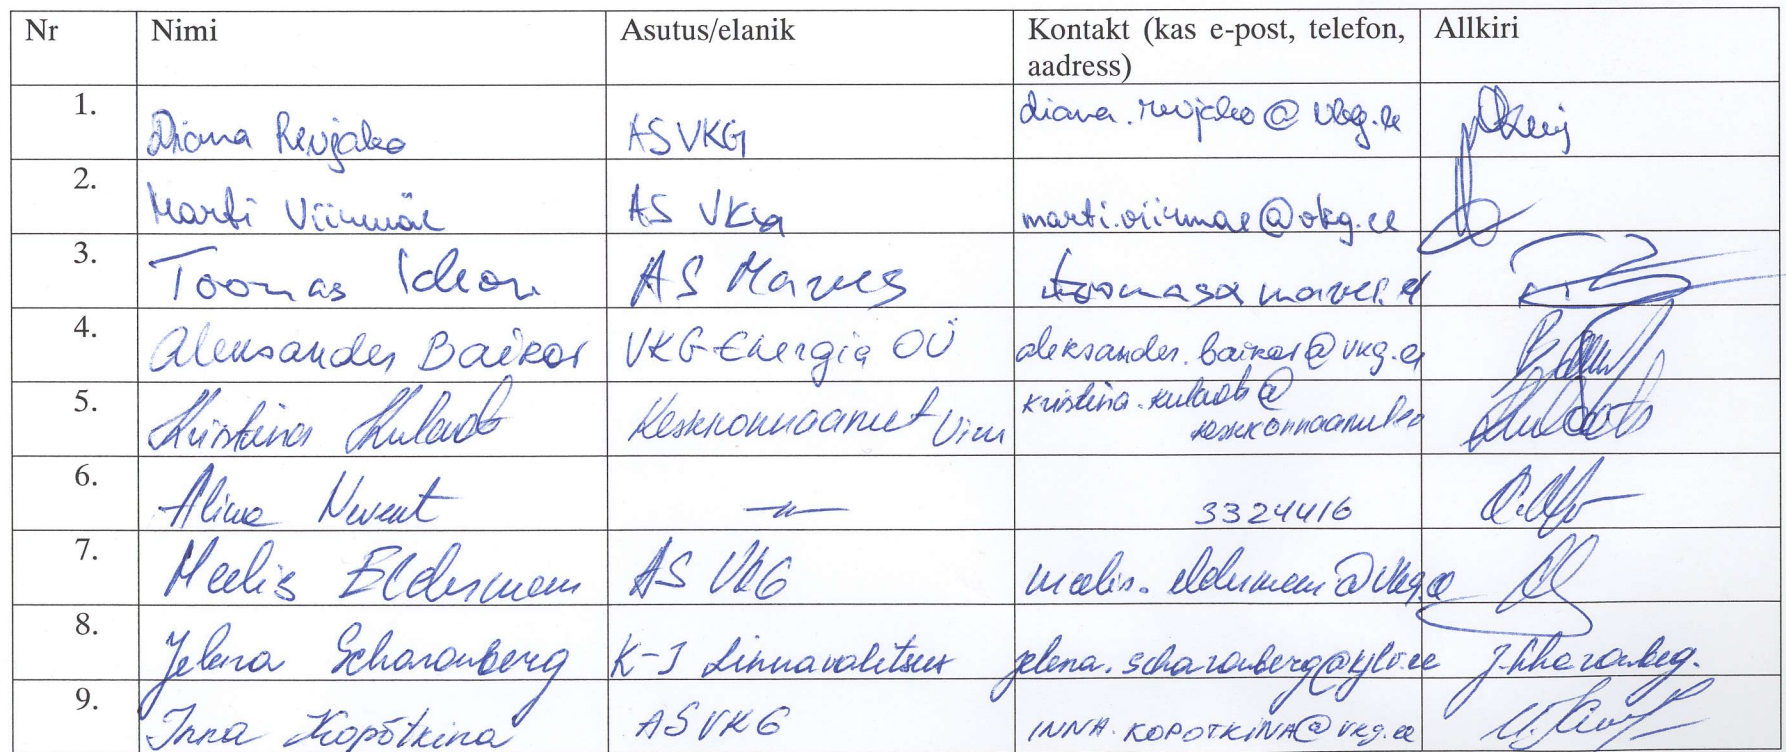 Nr Nimi Asutus/elanik Kontakt (kas e-post, telefon, aadress) Allkiri
1. Diana Revjako AS VKG diana.revjako@vkg.ee
2. Marti Viirmäe AS VKG marti.viirmae@vkg.ee
3. Toonas Ideon AS Maves
4. Aleksander Baikov VKG Energia OÜ aleksander.baikov@vkg.ee
5. Kristina Kulaots Keskkonnaamet Viru kristina.kulaots@
keskkonnaamet.ee
6. Alina 3324416
7. Meelis Eldermann AS VKG meelis.eldermann@vkg.ee
8. Jelena Scharonberg K-J Linnavalitsus jelena.scharonberg@kjlv.ee J. Scharonberg.
9. Inna Kopõtkina AS VKG INNA.KOPOTKINA@vkg.ee